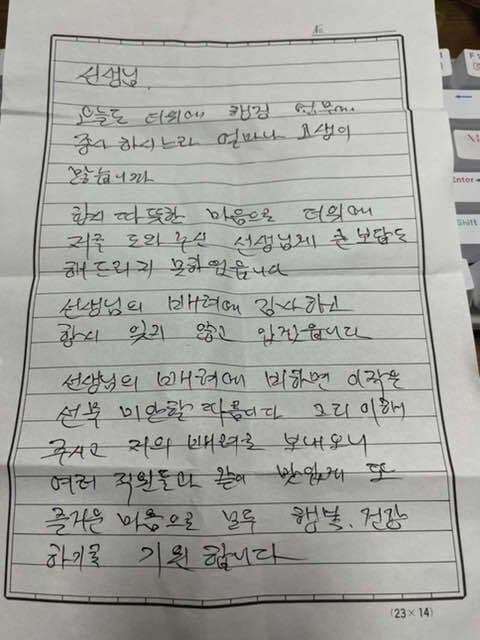 No
선생님,
오늘도 더위에 행정 업무에
종사 하시느라 얼마나 고생이
많습니까
항시 따뜻한 마음으로 더위에
저를 도와 주신 선생님께 큰 보답도
해 드리지 못하였읍니다
선생님의 배려에 감사하고
항시 잊지 않고 있겠읍니다
선생님의 배려에 비하면 이작은
선물 미안할 따름이다 그리 이해
주시고 저의 배려를 보내오니
여러 직원들과 같이 맛있게 또
즐거운 마음으로 모두 행복, 건강
하기를 기원 합니다
(23×14)
Enter
Shift